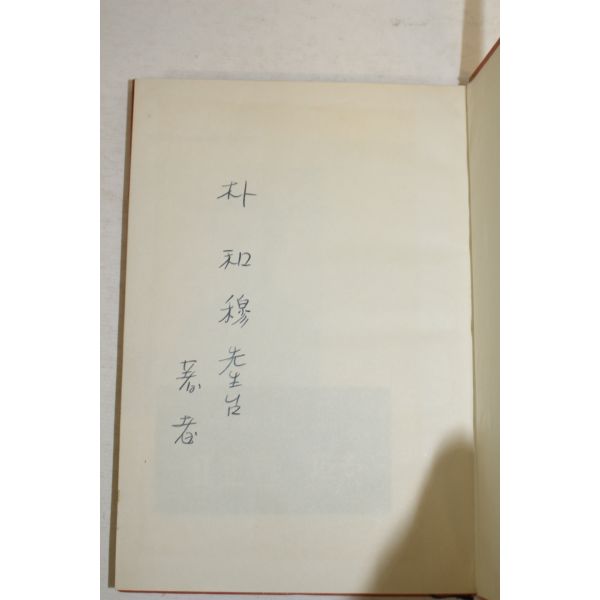 朴和穆先生님
著者